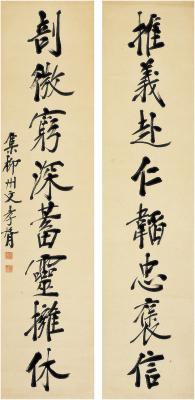 推義赴仁韜忠褒信
剖微窮深蓄靈擁休
集柳州文孝胥